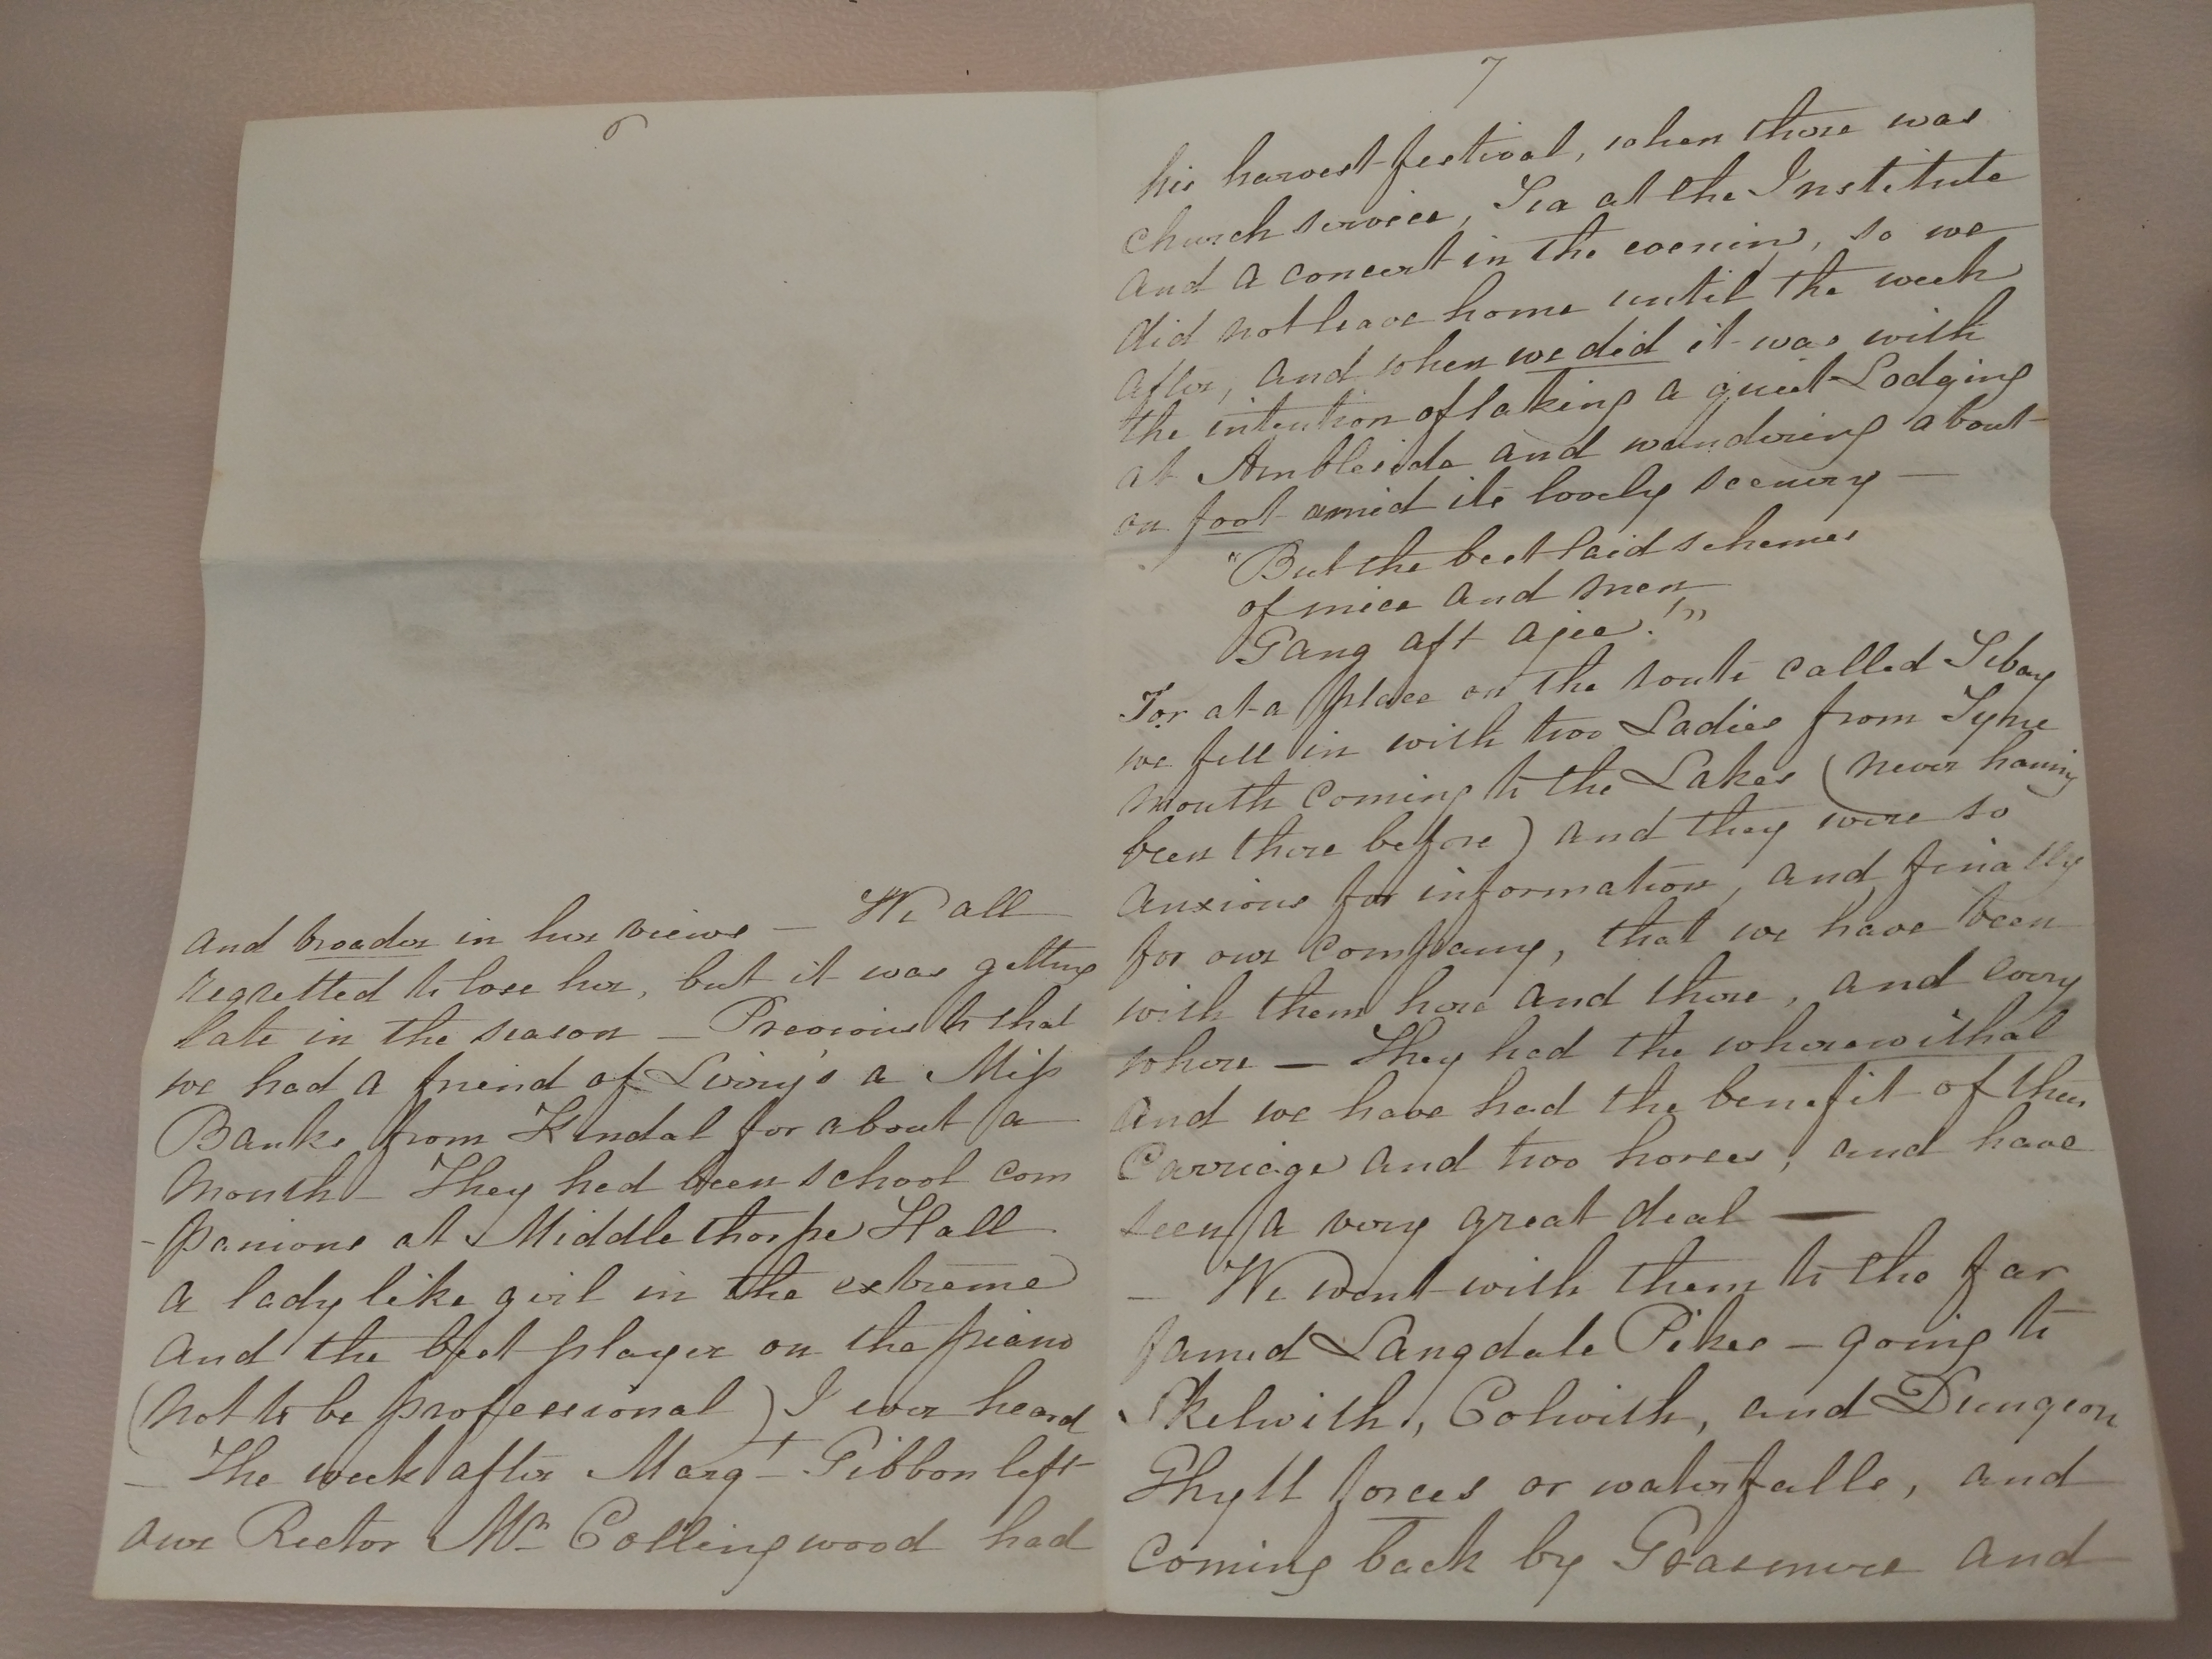 6
and broader in her views — We all
regretted to lose her, but it was getting
late in the season — Previous to that
we had a friend of Livvy's a Miss
Banks from Kendal for about a
month — They had been school com
-panions at Middlethorpe Hall
a lady like girl in the extreme
and the best player on the piano
(not to be professional) I ever heard
— The week after Margt Gibbon left
our Rector Mr Collingwood had
7
his harvest festival, when there was
church service, Tea at the Institute
and a concert in the evening, so we
did not leave home until the week
after, and when we did it was with
the intention of taking a quiet Lodging
at Ambleside and wandering about
on foot amid its lovely scenery —
"But the best laid schemes
of mice and men
Gang aft ajee!"
For at a place on the route called Tebay
we fell in with two Ladies from Tyne
mouth coming to the Lakes (never having
been there before) and they were so
anxious for information, and finally
for our company, that we have been
with them here and there, and every
where — They had the wherewithal
and we have had the benefit of their
Carriage and two horses, and have
seen a very great deal —
— We went with them to the far
famed Langdale Pikes — going to
Skelwith, Colwith, and Dungeon
Ghyll forces or waterfalls, and
coming back by Grasmere and